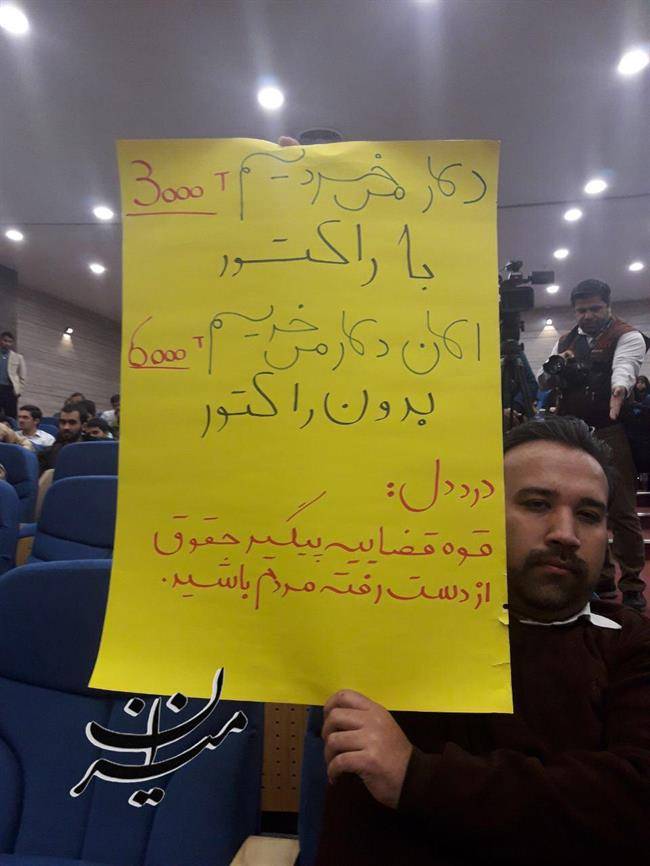 دلار می‌خریدیم 3000 T
با راکتور
الان دلار می‌خریم 6000 T
بدون راکتور
درد دل:
قوه قضاییه پیگیر حقوق
از دست رفته مردم باشید.
میزان